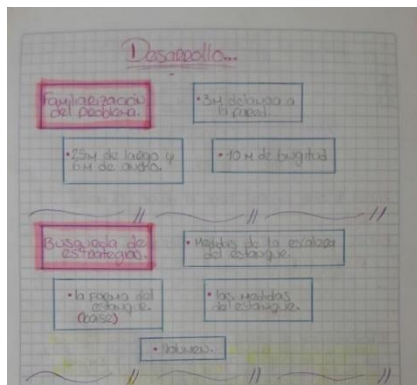 Desarrollo...
Familiarización
del problema.
• 3M de lavaza a
la pared.
• 25M de largo y
6M de ancho.
• 10 M de longitud
Busqueda de
estrategias.
• Medidas de la escalera
del estanque.
• la forma del
estanque.
(base)
• las medidas
del estanque.
• Volumen.